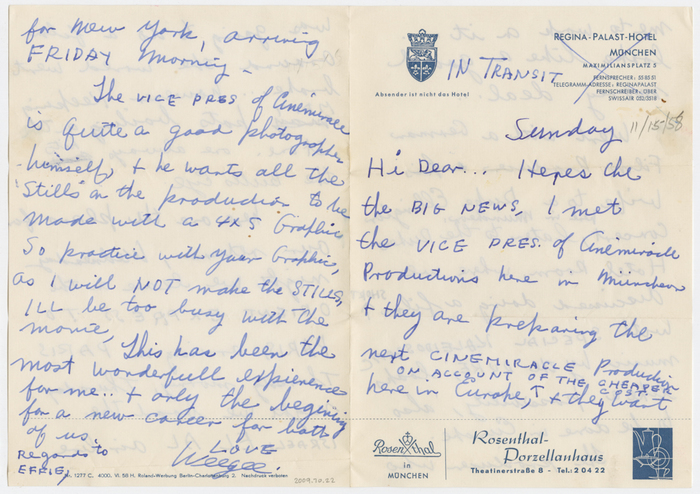 for New York, arriving
FRIDAY morning –
The VICE PRES. of Cinemiracle
is quite a good photographer
himself, + he wants all the
'Stills' on the production to be
made with a 4x5 Graphic
So practice with your Graphic,
as I will NOT make the STILLS,
ILL be too busy with the
movie,
This has been the
most wonderfull expierence
for me.. + only the begining
for a new career for both
of us.
LOVE
Weegee.
regards to
EFFIE,
Nr. 1277 C. 4000. VI. 58 H. Roland-Werbung Berlin-Charlottenburg 2. Nachdruck verboten
2009.70.22
REGINA-PALAST-HOTEL
MÜNCHEN
MAXIMILIANSPLATZ 5
FERNSPRECHER: 55 85 51
TELEGRAMM-ADRESSE: REGINAPALAST
FERNSCHREIBER: ÜBER
SWISSAIR 052/3218
Absender ist nicht das Hotel
IN TRANSIT
Sunday
11/15/58
Hi Dear... Heres the
the BIG NEWS, I met
the VICE PRES. of Cinemiracle
Productions here in München
+ they are preparing the
next CINEMIRACLE Production
ON ACCOUNT OF THE CHEAPER
COST.
here in Europe, + they want
Rosenthal
in
MÜNCHEN
Rosenthal-
Porzellanhaus
Theatinerstraße 8 - Tel.: 2 04 22